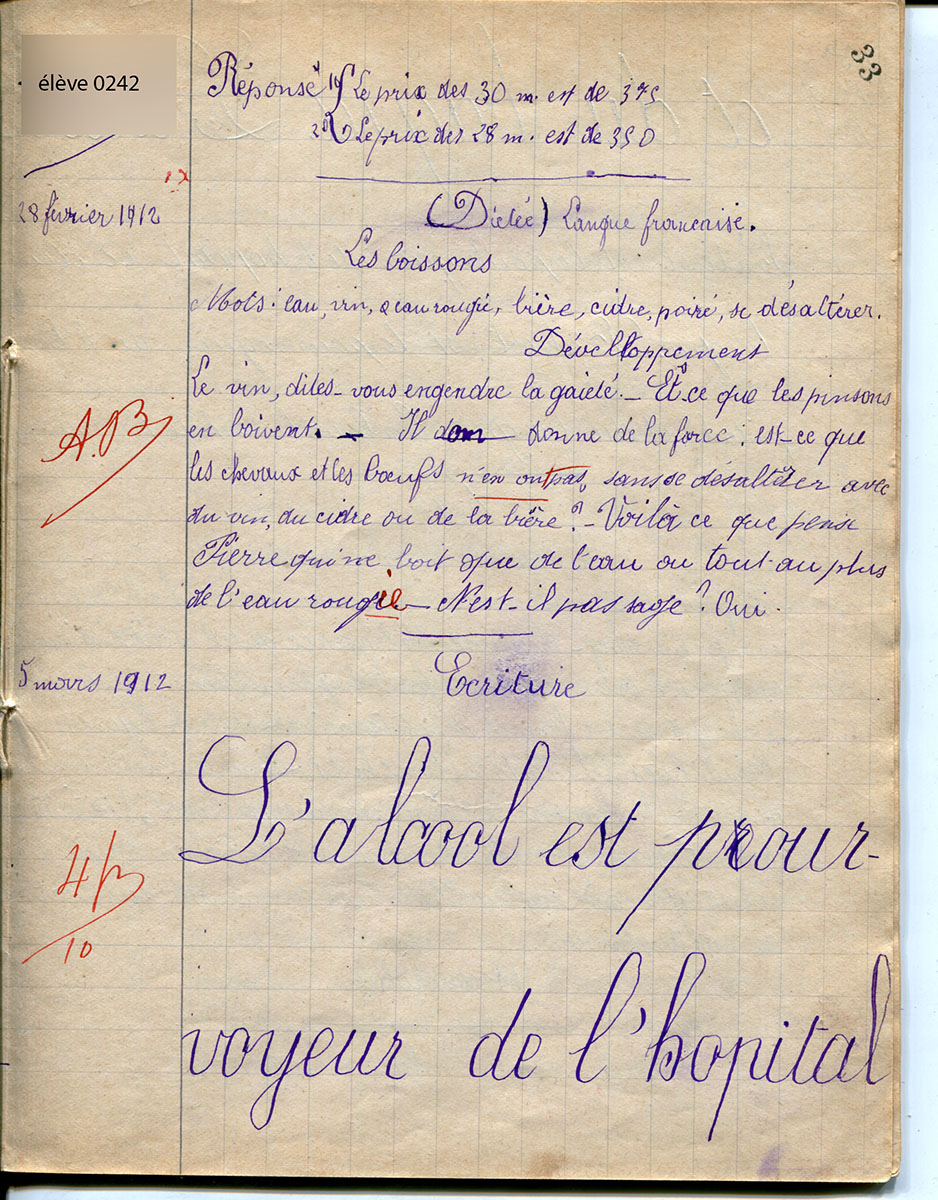 33
élève 0242
Réponse 1º) Le prix des 30 m. est de 375
2º) Le prix des 28 m. est de 350
28 février 1912
(Dictée) Langue française.
Les boissons
Mots: eau, vin, eau rougie, bière, cidre, poiré, se désaltérer.
Développement
Le vin, dites-vous engendre la gaieté. - Est ce que les pinsons
en boivent. - Il donne de la force : est-ce que
A.B
les chevaux et les bœufs n'en ont pas, sans se désaltérer avec
du vin, du cidre ou de la bière ? - Voilà ce que pense
Pierre qui ne boit que de l'eau ou tout au plus
de l'eau rougie - N'est-il pas sage ? Oui.
5 mars 1912
Ecriture
L'alcool est pour-
10
voyeur de l'hopital